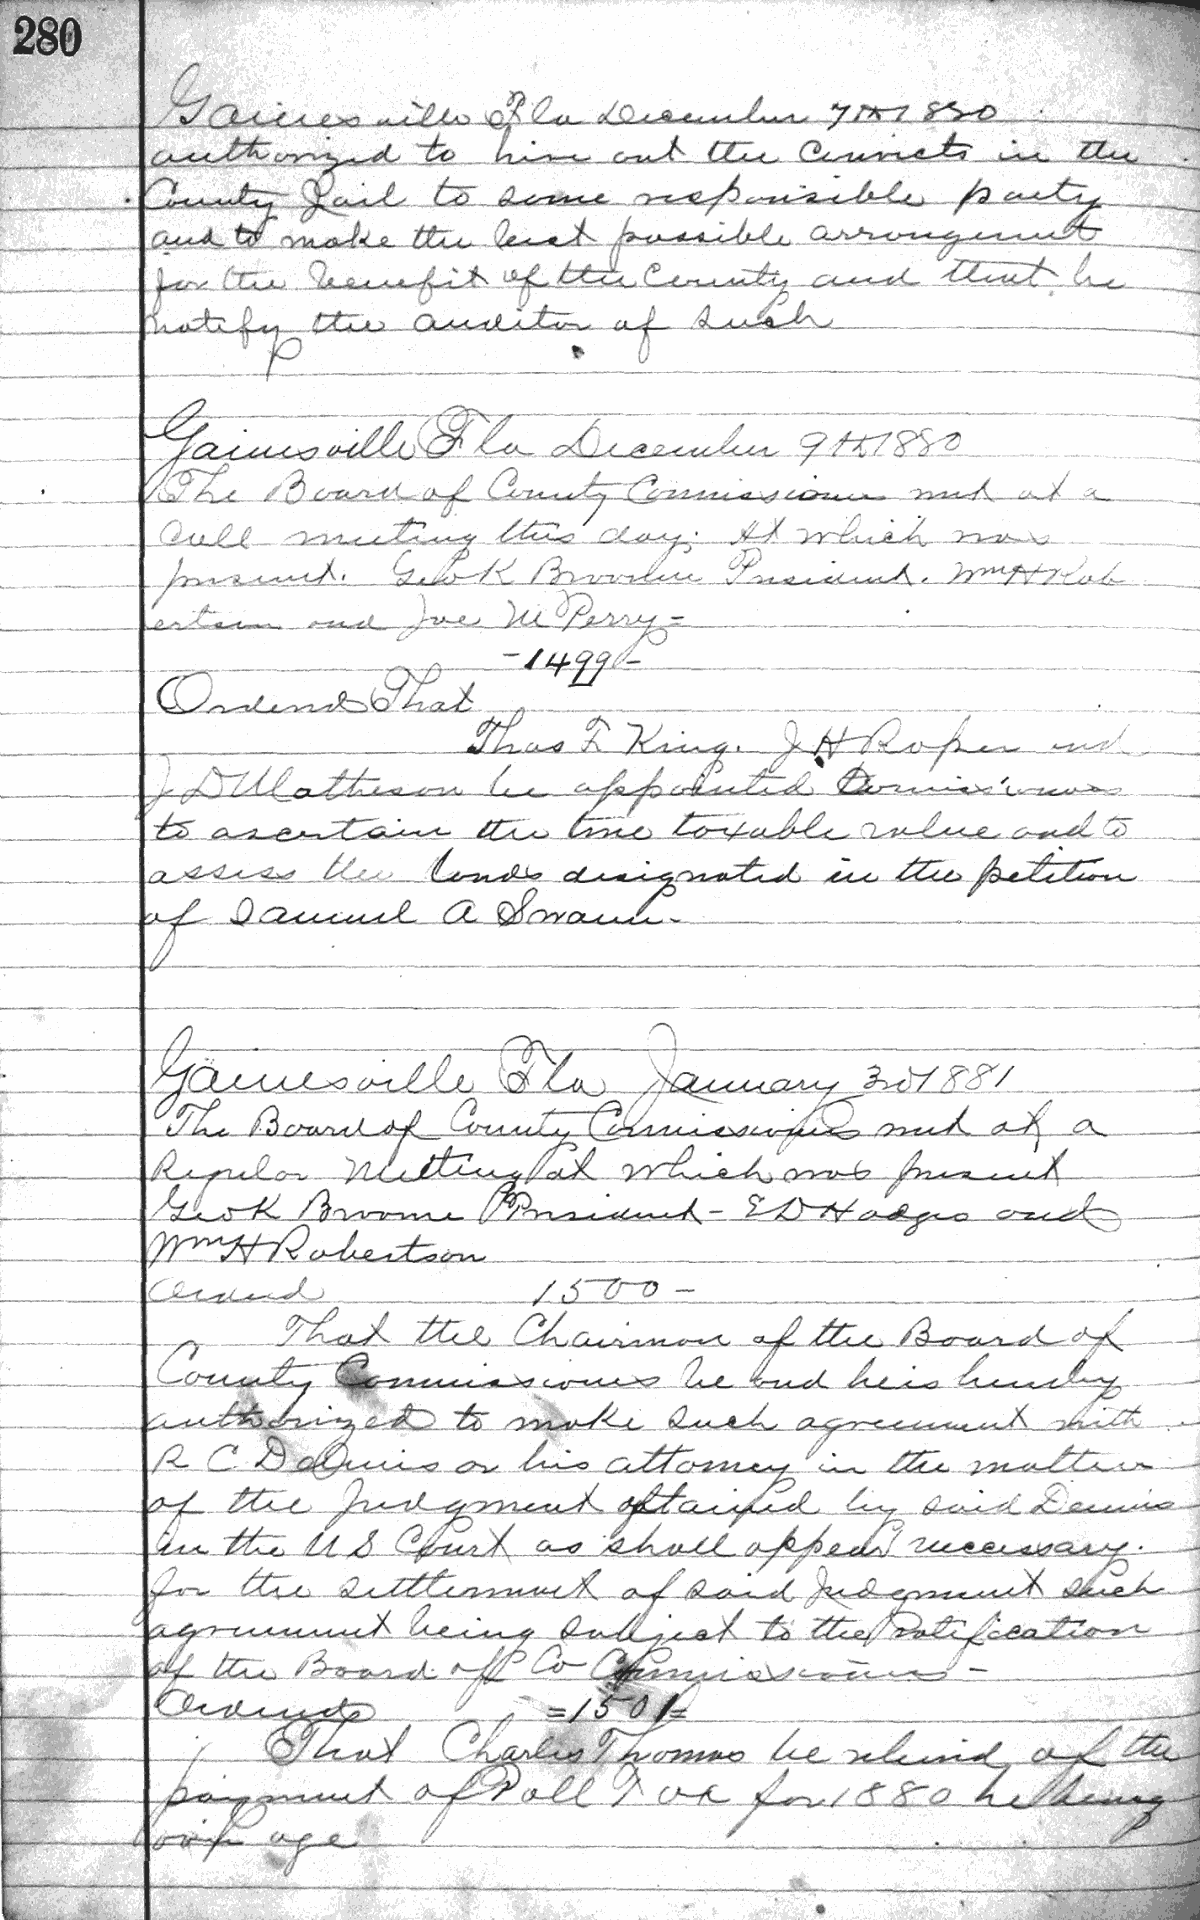 280
Gainesville Fla December 7th 1880
authorized to hire out the convicts in the
County Jail to some responsible party
and to make the best possible arrangement
for the benefit of the County and that he
notify the auditor of such
Gainesville Fla December 9th 1880
The Board of County Commissioners met at a
call meeting this day. At which was
present. Geo K Broome President. Wm H Rob
ertson and Joe M Perry =
-1499-
Ordered That
Thos F King. J H Roper and
J D Matheson be appointed Commissioners
to ascertain the true taxable value and to
assess the lands designated in the petition
of Samuel A Swann-
Gainesville Fla January 3rd 1881
The Board of County Commissioners met at a
Regular Meeting at which was present
Geo K Broome President - E D Hodges and
Wm H Robertson
Ordered 1500-
That the Chairman of the Board of
County Commissioners be and he is hereby
authorized to make such agreement with
R C Dennis or his attorney in the matter
of the Judgment obtained by said Dennis
in the U S Court as shall appear necessary.
for the settlement of said Judgment such
agreement being subject to the ratification
of the Board of Co Commissioners -
Ordered =1501=
That Charles Thomas be relieved of the
payment of Poll Tax for 1880 he being
over age